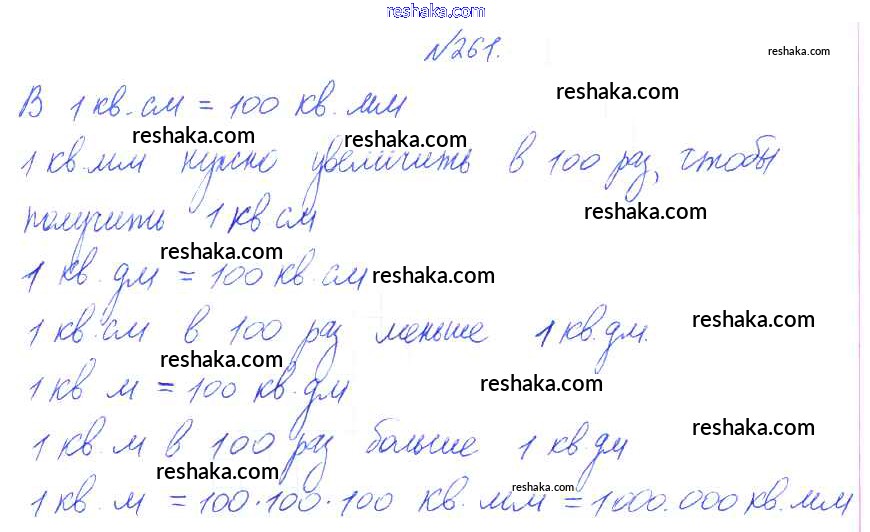 reshaka.com
№261.
reshaka.com
В 1 кв. см = 100 кв. мм
reshaka.com
reshaka.com
reshaka.com
1 кв. мм нужно увеличить в 100 раз, чтобы
получить 1 кв см
reshaka.com
reshaka.com
1 кв. дм = 100 кв. см
reshaka.com
1 кв. см в 100 раз меньше 1 кв. дм.
reshaka.com
reshaka.com
1 кв м = 100 кв. дм
reshaka.com
1 кв. м в 100 раз больше 1 кв. дм
reshaka.com
reshaka.com
1 кв. м = 100·100·100 кв. мм = 1000.000 кв. мм
reshaka.com